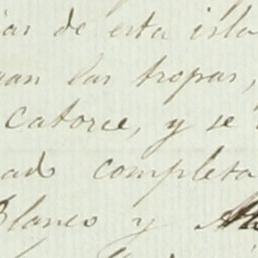 ias de esta isla
uan las tropas,
Catorce, y se
ado completa
Blanco y